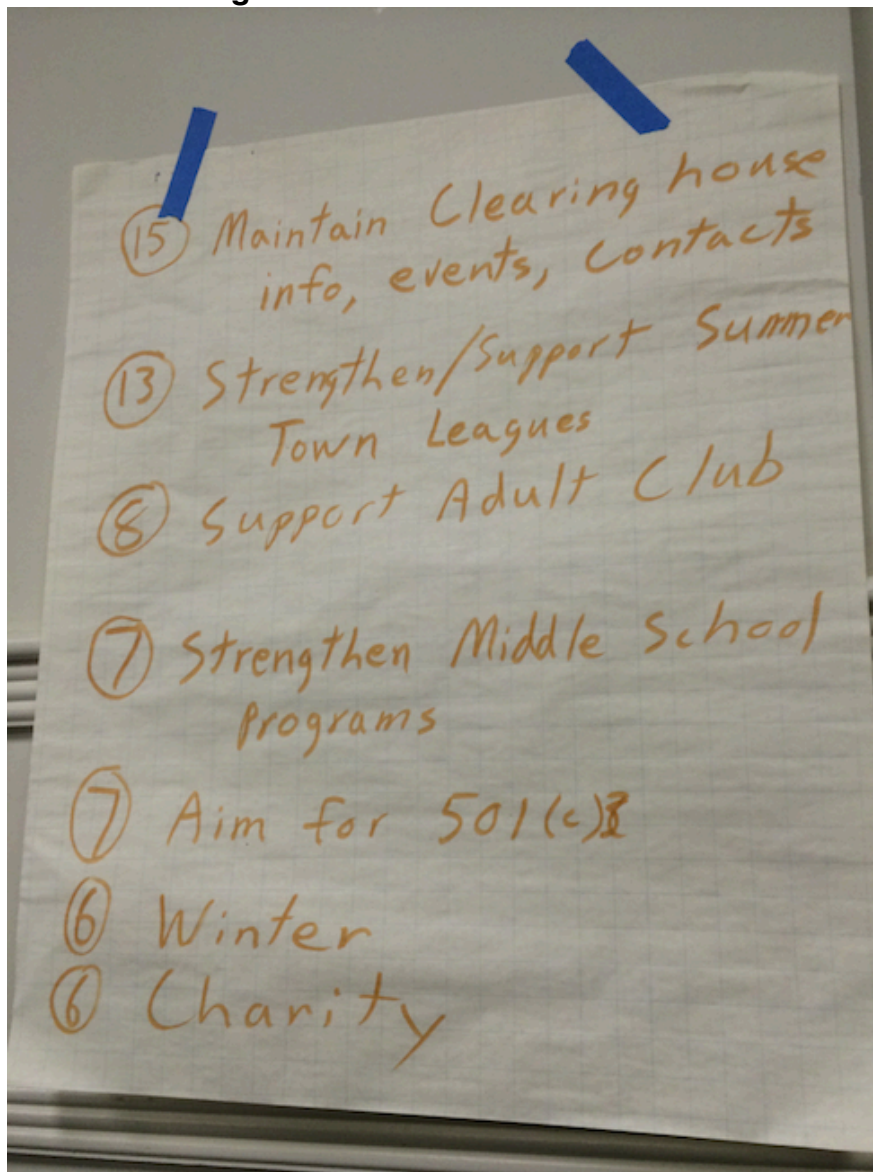 ⑮ Maintain Clearing house
info, events, contacts
⑬ Strengthen/Support Summer
Town Leagues
⑧ Support Adult Club
⑦ Strengthen Middle School
Programs
⑦ Aim for 501(c)3
⑥ Winter
⑥ Charity